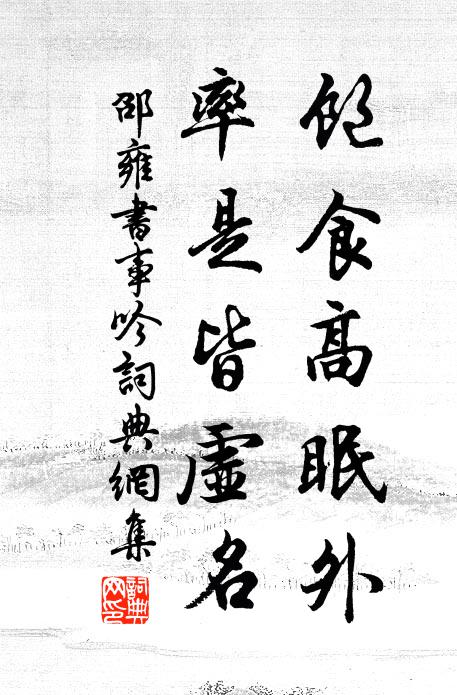 飽食高眠外
率是皆虛名
邵雍書事吟詞典網集
詞典网印